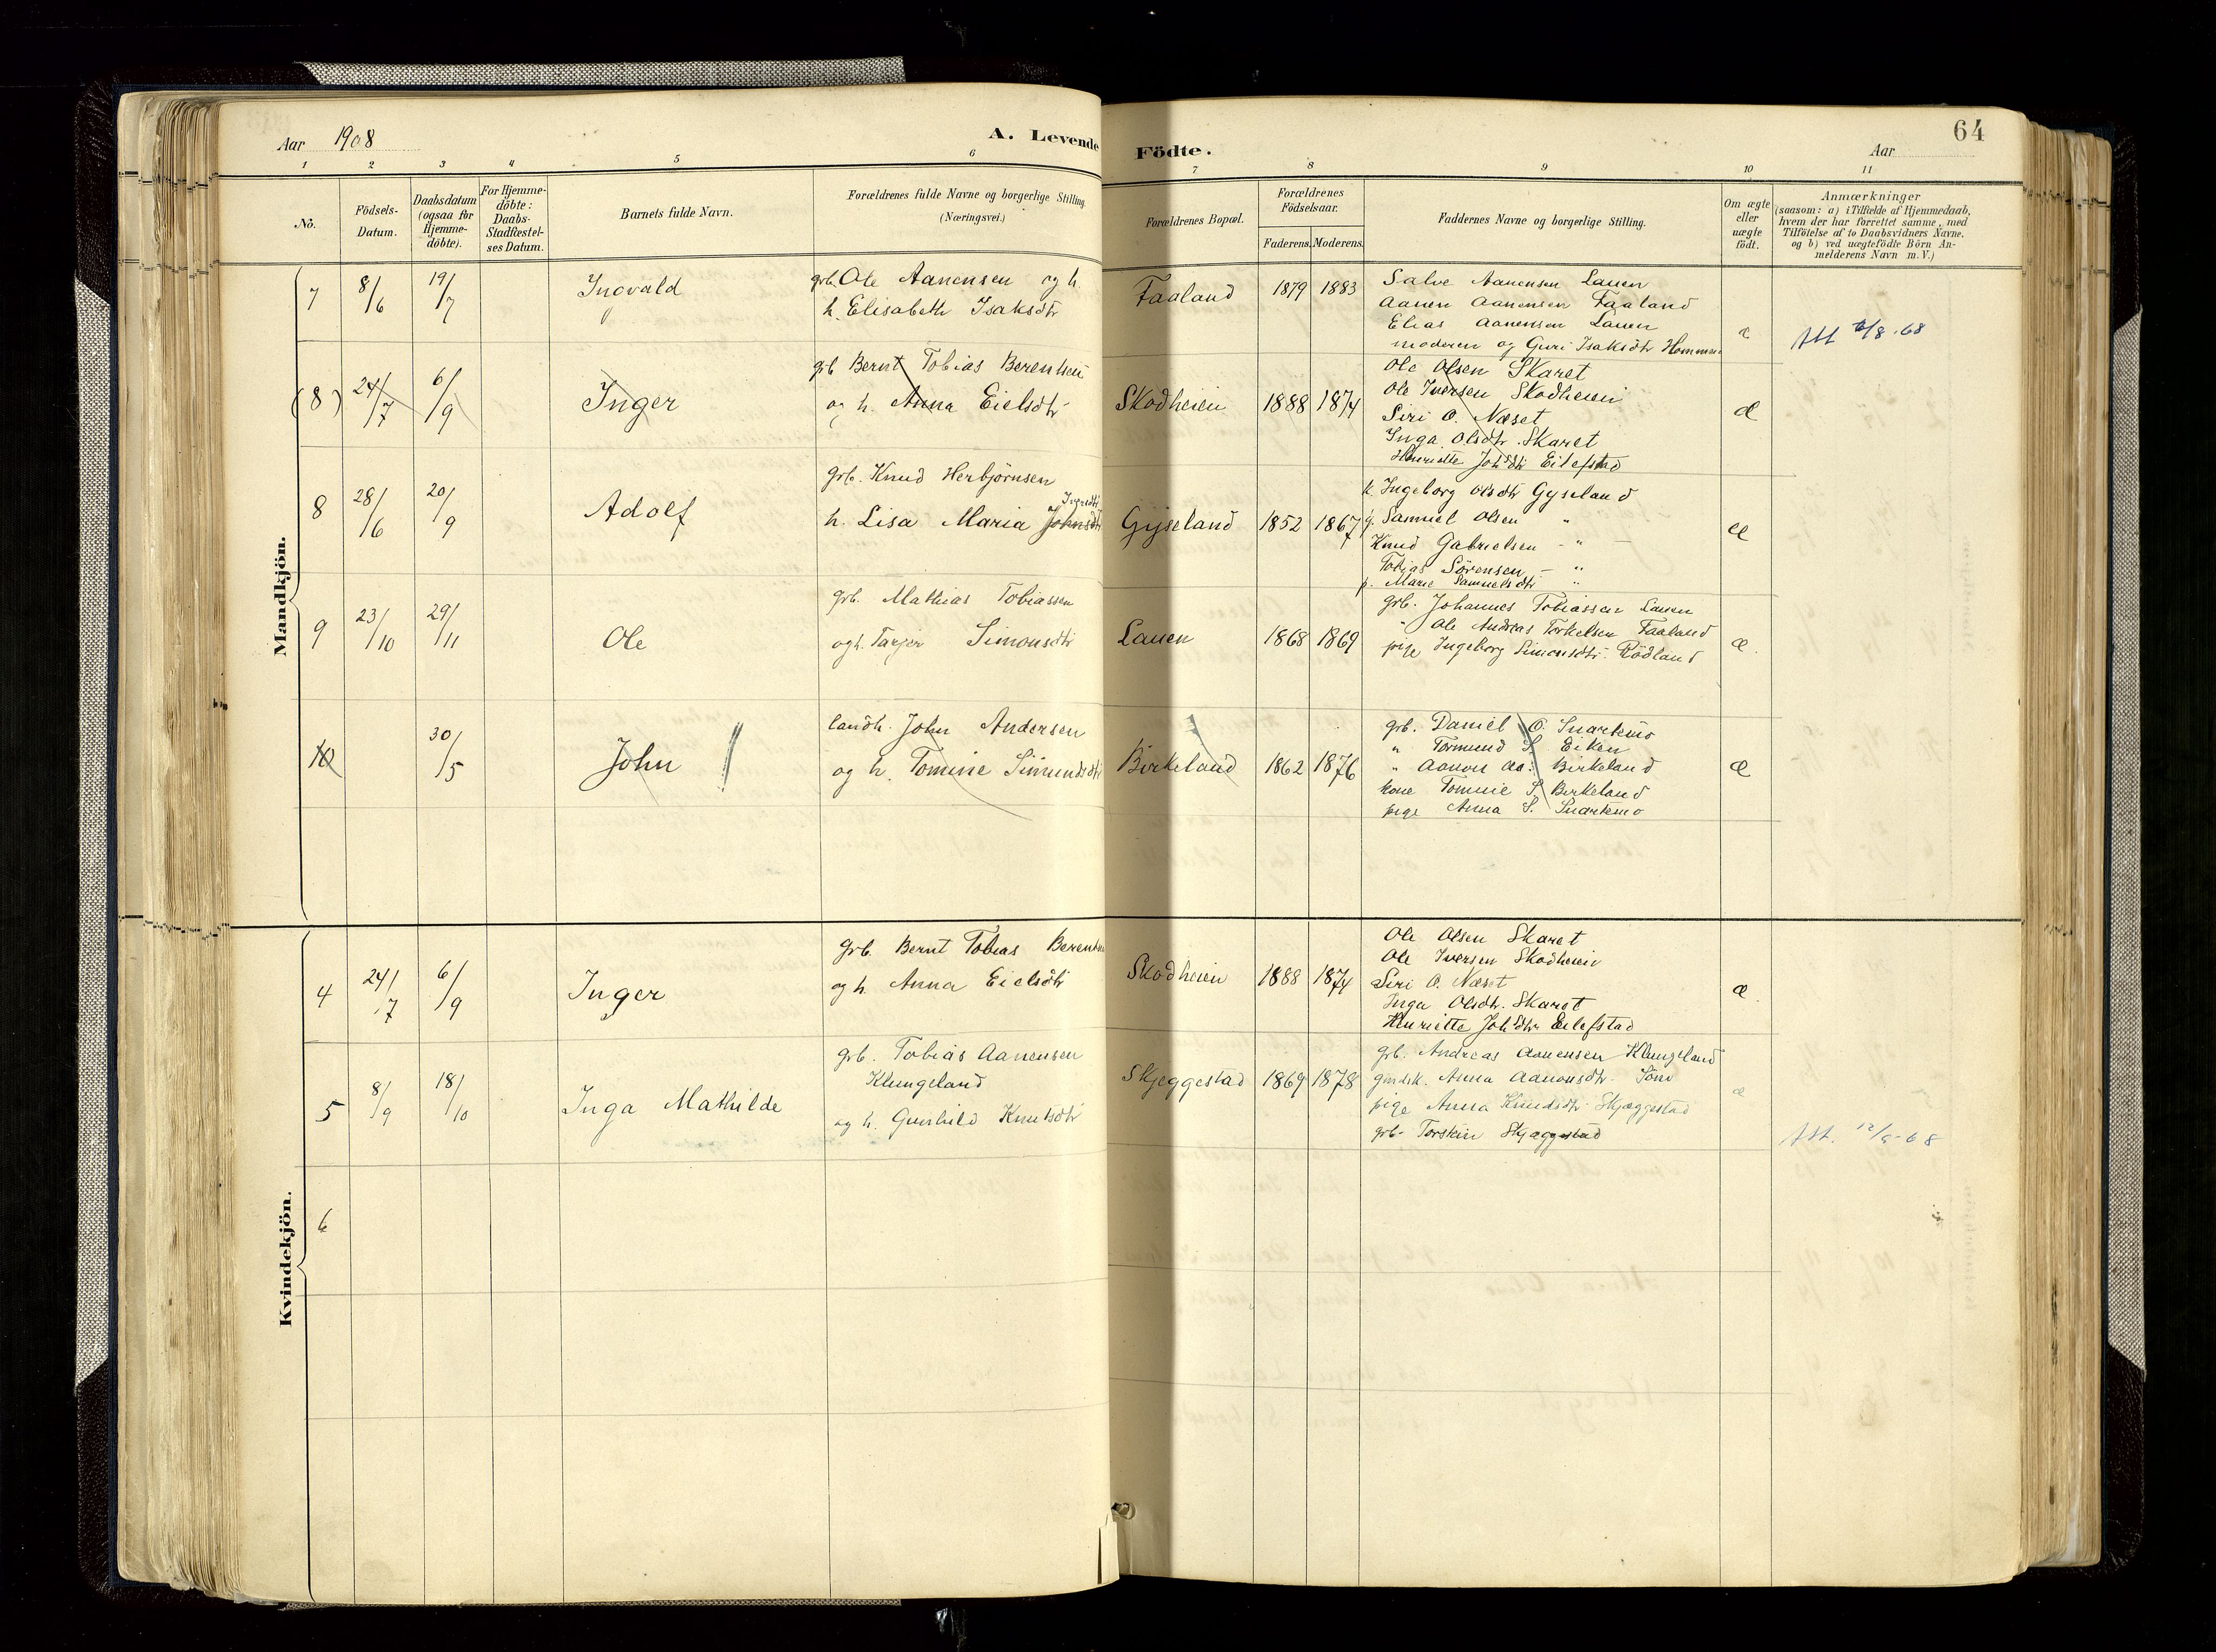 64
Aar 1908
A. Levende Födte.
Aar
1 2 3 4 5 6 7 8 9 10 11
No.
Födsels-
Datum.
Daabsdatum
(ogsaa for
Hjemme-
döbte).
For Hjemme-
döbte:
Daabs-
Stadfæstel-
ses Datum.
Barnets fulde Navn.
Forældrenes fulde Navne og borgerlige Stilling
(Næringsvei.)
Forældrenes Bopæl.
Forældrenes
Födselsaar.
Faderens. Moderens.
Faddernes Navne og borgerlige Stilling.
Om ægte
eller
uægte
født.
Anmærkninger
(saasom: a) i Tilfælde af Hjemmedaab,
hvem der har forrettet samme, med
Tilföielse af to Daabsvidners Navne.
og b) ved uægtefödte Börn An-
melderens Navn m. V.)
Mandkjön.
7 8/6 19/7 Ingvald
grb. Ole Aanensen og h.
h. Elisabeth Isaksdtr
Faaland 1879 1883
Salve Aanensen Lauen
Aanen Aanensen Faaland
Elias Aanensen Lauen
moderen og Guri Isaksdtr
æ
Att 6/8-68
(8) 24/7 6/9 Inger
grb Bernt Tobias Berentsen
og h. Anna Eielsdtr
Skodheien 1888 1874
Ole Olsen Skaret
Ole Iversen Skodheien
Siri O. Næset
Inga Olsdtr. Skaret
Henriette Johsdtr Eilefstad
æ
8 28/6 20/9 Adolf
grb. Knud Herbjörnsen
h. Lisa Maria Johnsdtr
Gyseland 1852 1867
k. Ingeborg Olsdtr Gyseland
g. Samuel Olsen "
Knud Gabrielsen - " -
Tobias Sörensen - "
p. Marie Samuelsdtr "
æ
9 23/10 29/11 Ole
grb. Mathias Tobiassen
og h. Tarjer Simonsdtr
Lauen 1868 1869
grb. Johannes Tobiassen Lauen
" Ole Andreas Torkelsen Faaland
pige Ingeborg Simonsdtr. Rödland
æ.
10 30/5 John
landh. John Andersen
og h. Tomine Simundsdtr
Birkeland 1862 1876
grb. Daniel O. Snartemo
" Tormund S. Eiken
" Aanon Aa. Birkeland
kone Tomine S. Birkeland
pige Anna S. Snartemo
æ
Kvindekjön.
4 24/7 6/9 Inger
grb. Bernt Tobias Berentsen
og h. Anna Eielsdtr
Skodheien 1888 1874
Ole Olsen Skaret
Ole Iversen Skodheien
Siri O. Næset
Inga Olsdtr. Skaret
Henriette Johsdtr Eilefstad
æ.
5 8/9 18/10 Inga Mathilde
grb. Tobias Aanensen
Klungeland
og h. Gunhild Knutsdtr
Skjeggestad 1869 1878
grb. Andreas Aanensen Klungeland
Anna Aanonsdtr.
pige Anna Knudsdtr Skjæggestad
grb. Torskin Skjæggestad
æ
Att. 12/9-68
6